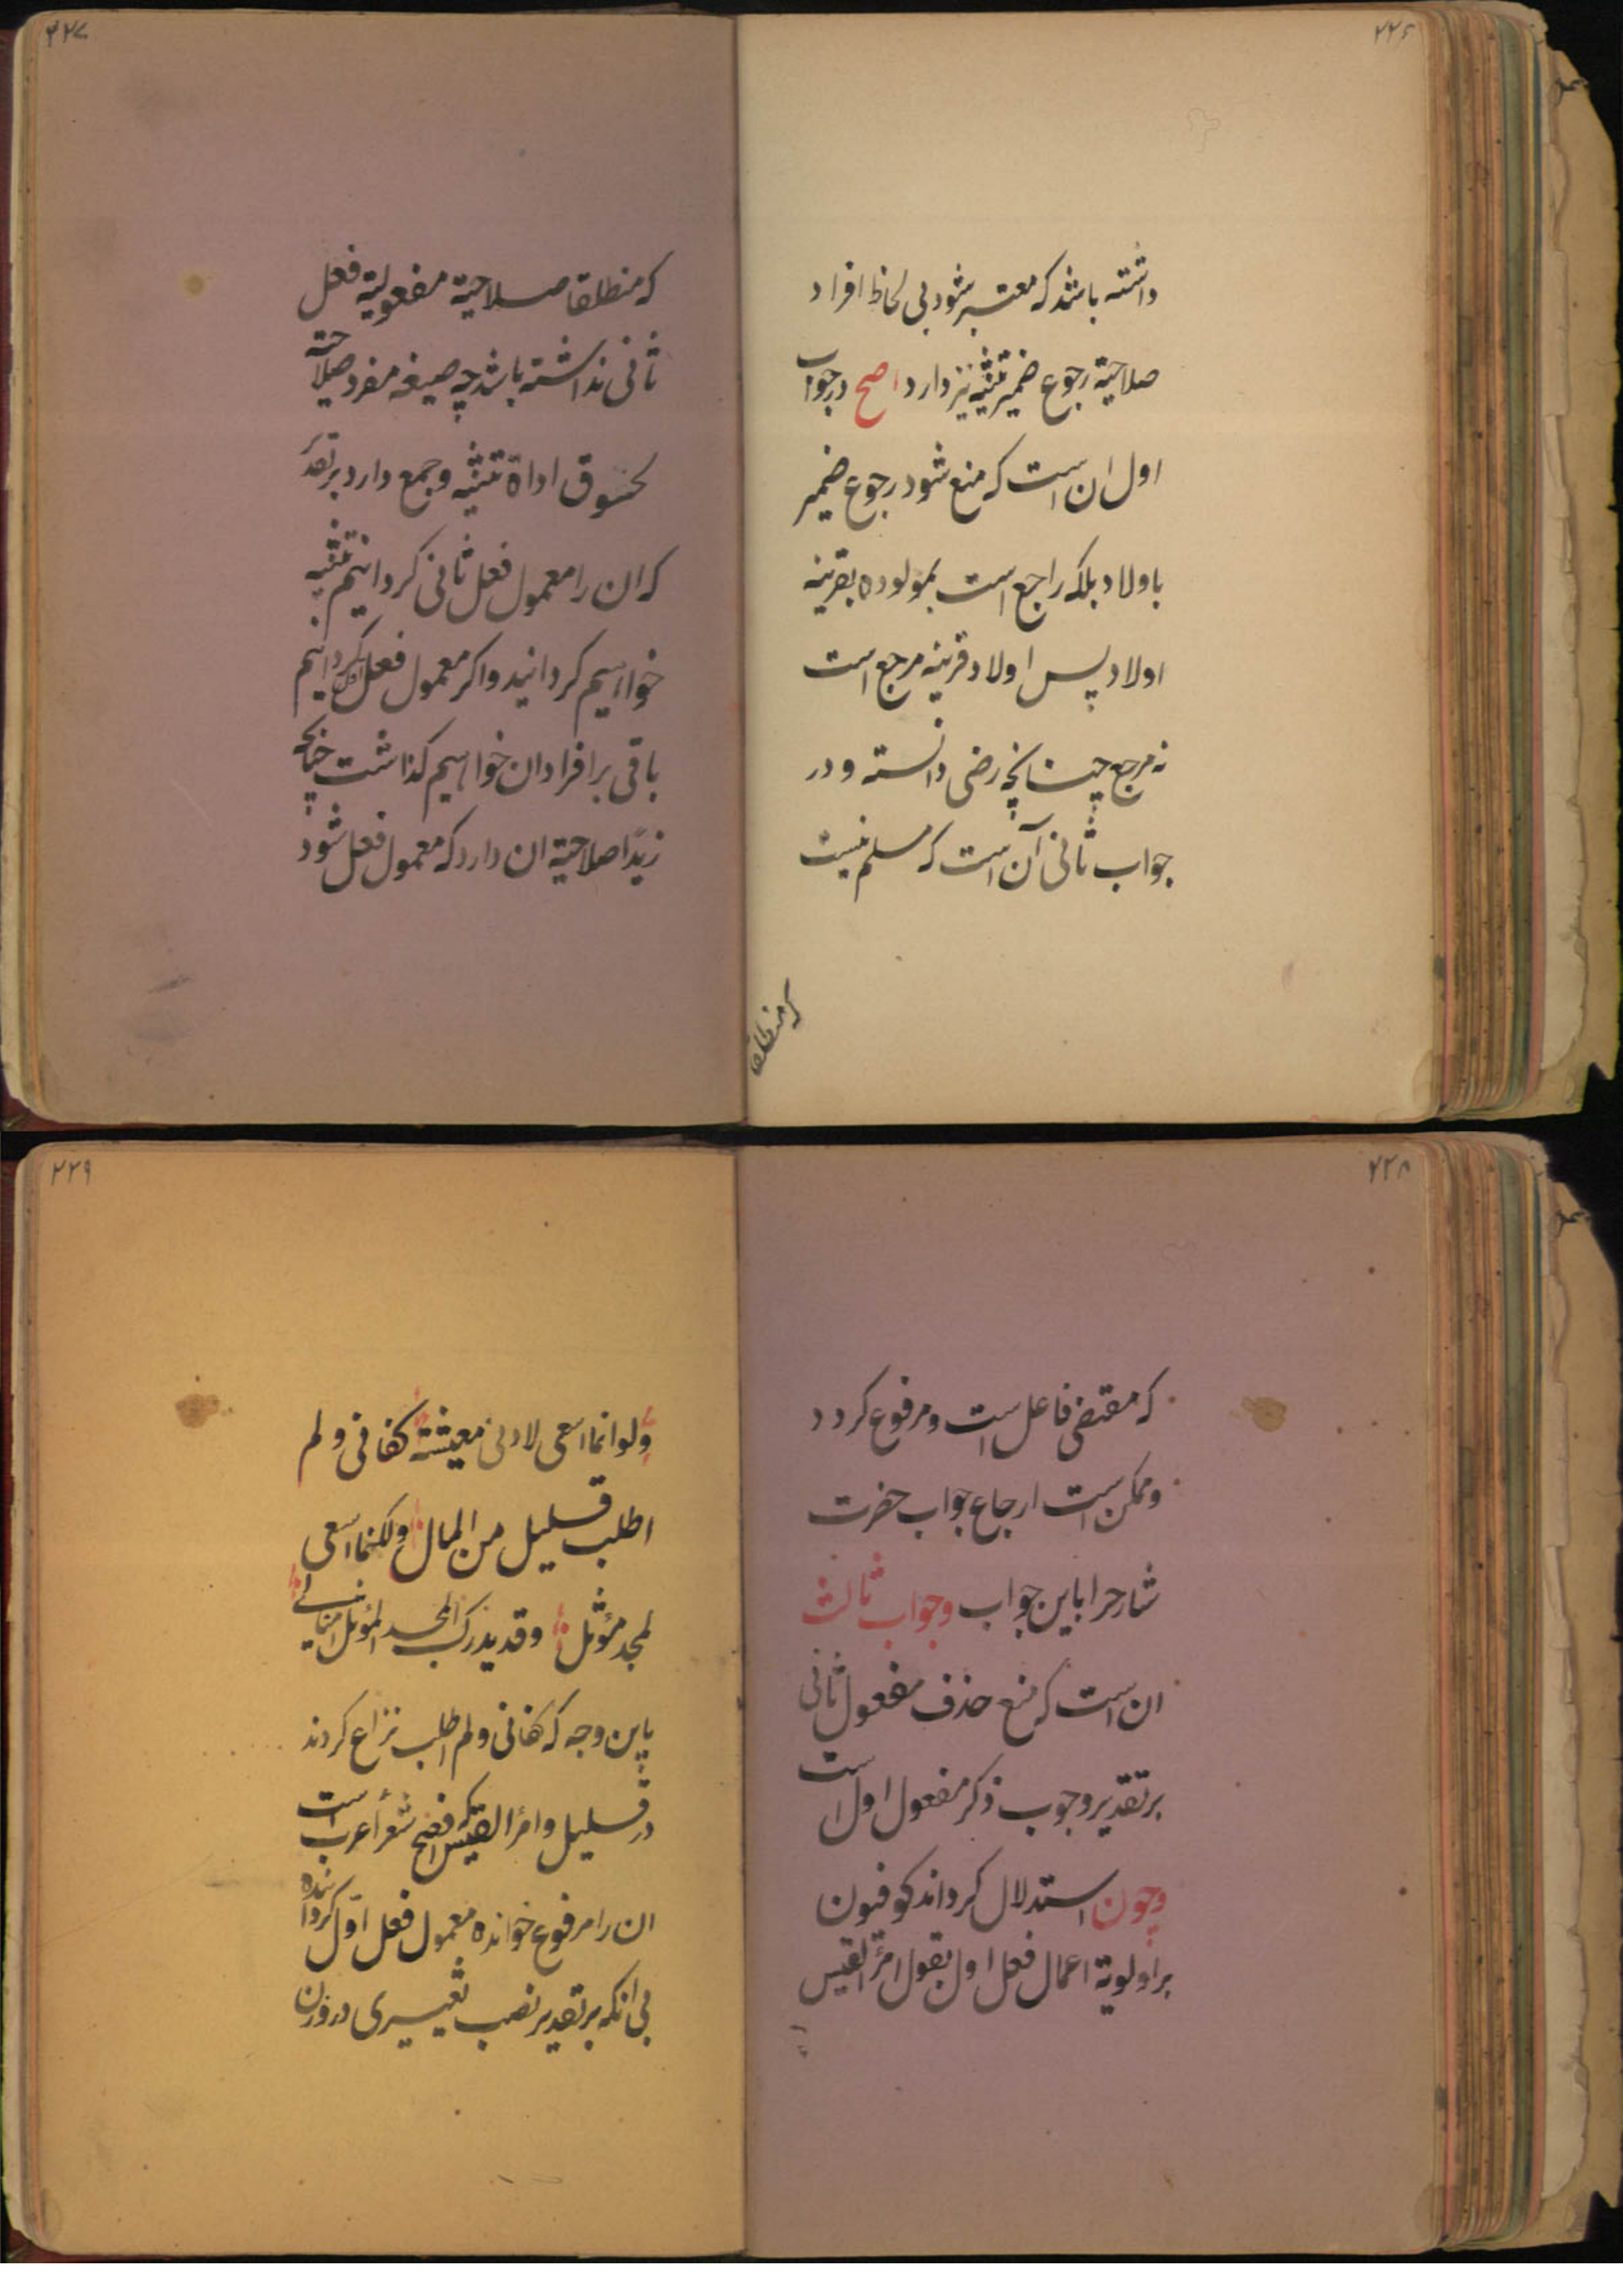 ۲۲۶
داشته باشد که معتبر شود بی لحاظ افراد
صلاحیة رجوع ضمیر تثنیه نیز دارد اصح در جواب
اول ان است که منع شود رجوع ضمیر
باولاد بلکه راجع است بمولوده بقرینه
اولاد پس اولاد قرینه مرجع است
نه مرجع چنانچه رضی دانسته و در
جواب ثانی آن است که مسلم نیست
که منطلقا
۲۲۷
که منطلقا صلاحیة مفعولیة فعل
ثانی نداشته باشد چه صیغه مفرد صلاحیة
لحوق اداة تثنیه و جمع دارد بر تقدیر
که ان را معمول فعل ثانی کردانیم تثنیه
خواهیم کردانید و اکر معمول فعل اول کردانیم
باقی بر افراد ان خواهیم کذاشت چنانچه
زیدًا صلاحیة ان دارد که معمول فعل شود
۲۲۸
که مقتضی فاعل است و مرفوع کردد
و ممکن است ارجاع جواب حضرت
شارح را باین جواب و جواب ثالث
ان است که منع حذف مفعول ثانی
بر تقدیر وجوب ذکر مفعول اول است
و چون استدلال کرده‌اند کوفیون
بر اولویة اعمال فعل اول بقول امرؤ القیس
۲۲۹
ولو انما اسعی لادنی معیشة کفانی و لم
اطلب قلیل من المال ولکنما اسعی
لمجد مؤثل وقد یدرک المجد المؤثل امثالی
باین وجه که کفانی و لم اطلب نزاع کردند
در قلیل و امرؤ القیس که افصح شعرأ عرب است
ان را مرفوع خوانده معمول فعل اوّل کردانیده
بی انکه بر تقدیر نصب تغییری در وزن